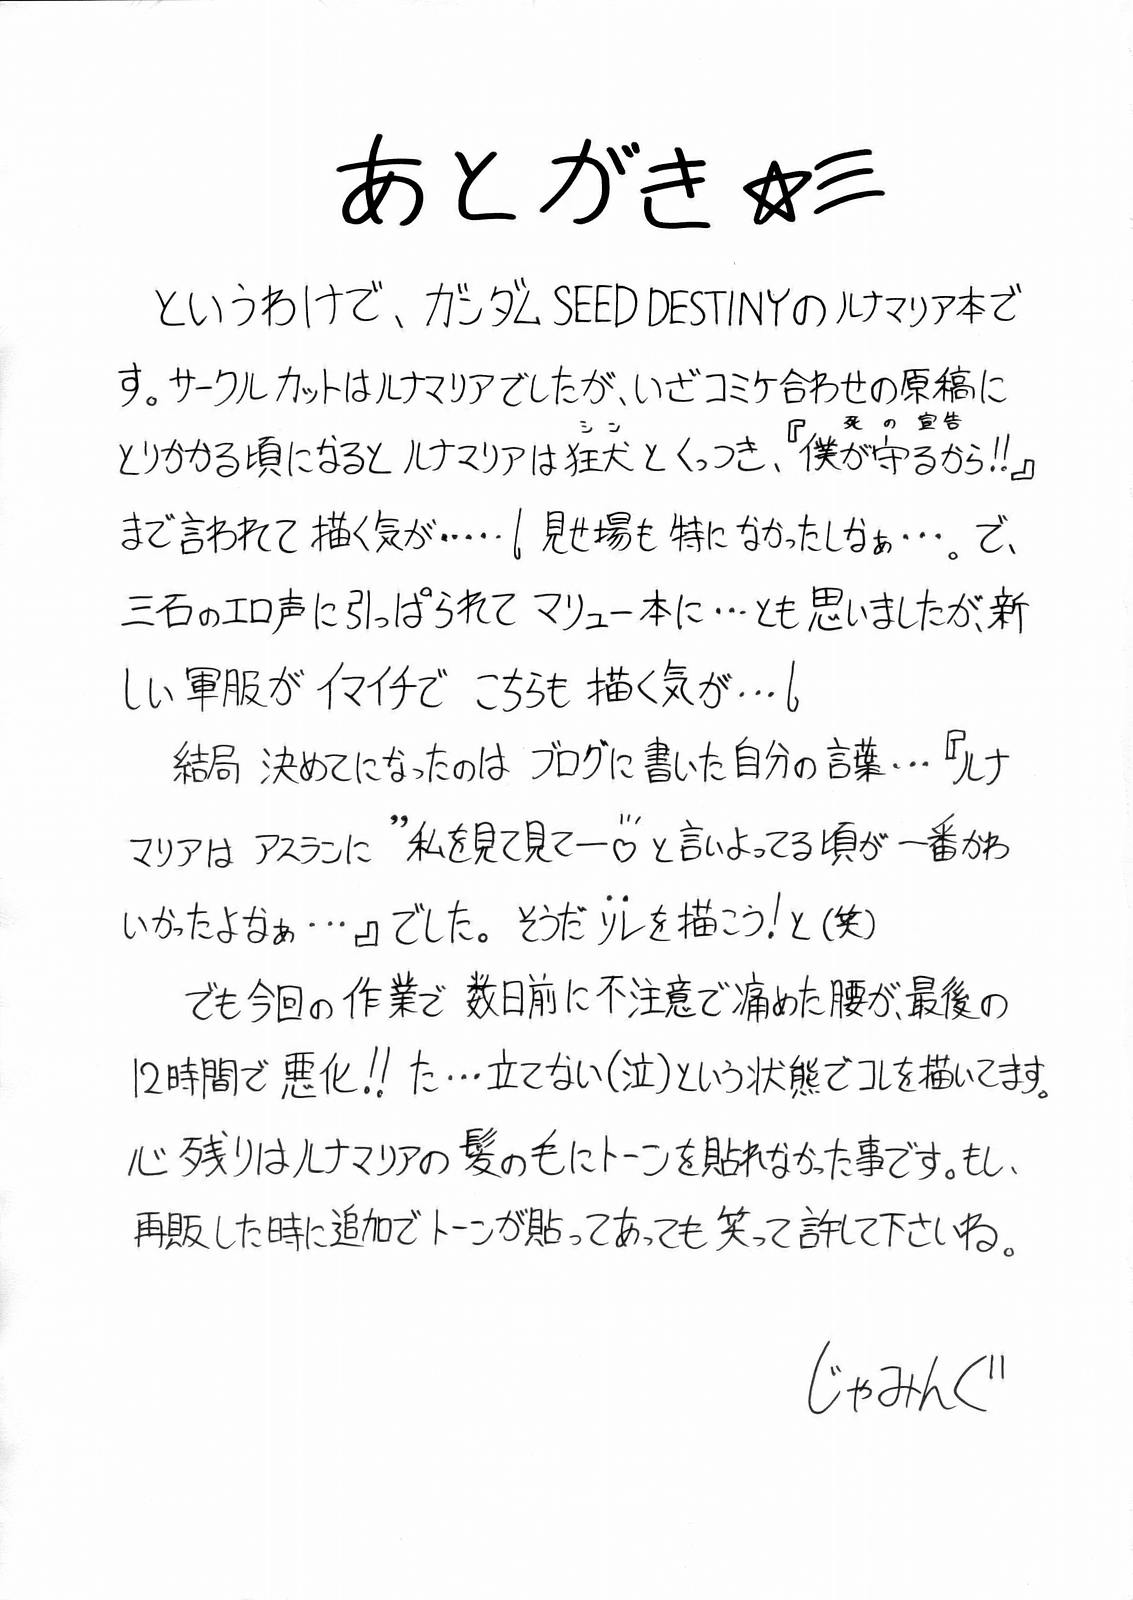 あとがき☆彡
というわけで、ガンダムSEED DESTINYのルナマリア本で
す。サークルカットはルナマリアでしたが、いざコミケ合わせの原稿に
シン 死の宣告
とりかかる頃になるとルナマリアは狂犬とくっつき、『僕が守るから!!』
まで言われて描く気が‥‥‥ 見せ場も特になかったしなぁ…。で、
三石のエロ声に引っぱられてマリュー本に…とも思いましたが、新
しい軍服がイマイチでこちらも描く気が…
結局決めてになったのはブログに書いた自分の言葉…『ルナ
マリアはアスランに”私を見て見てー♡と言いよってる頃が一番かわ
いかったよなぁ…』でした。そうだソレを描こう!と(笑)
でも今回の作業で数日前に不注意で痛めた腰が、最後の
12時間で悪化!! た…立てない(泣)という状態でコレを描いてます。
心残りはルナマリアの髪の毛にトーンを貼れなかった事です。もし、
再販した時に追加でトーンが貼ってあっても笑って許して下さいね。
じゃみんぐ